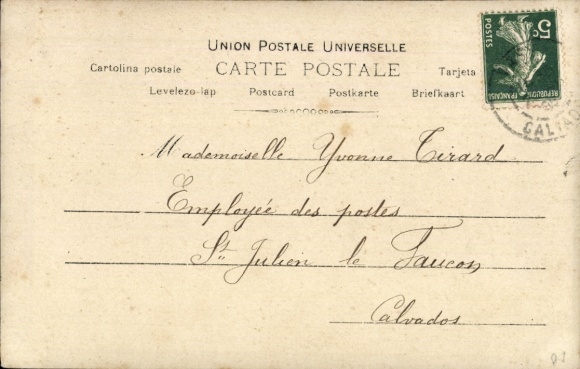 UNION POSTALE UNIVERSELLE
Cartolina postale CARTE POSTALE Tarjeta
Levelezo-lap Postcard Postkarte Briefkaart
5c
POSTES
REPUBLIQUE FRANÇAISE
Mademoiselle Yvonne Tirard
Employée des postes
St Julien le Faucon
Calvados